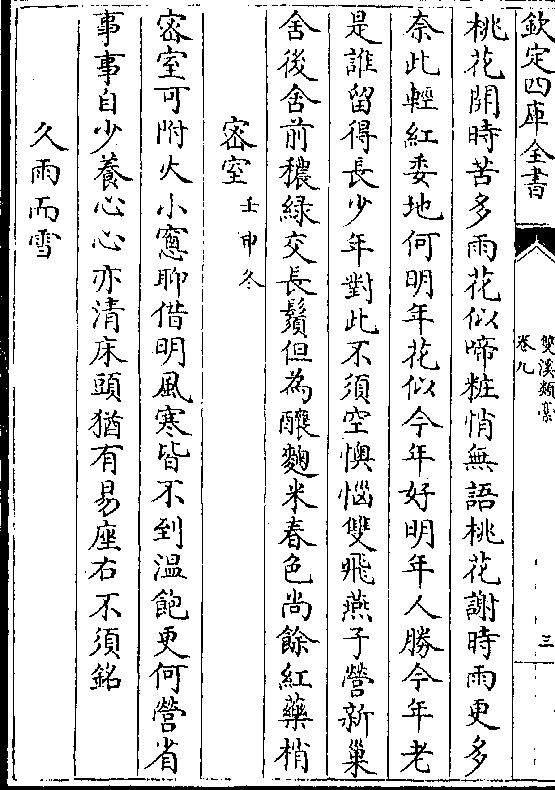 欽定四庫全書
雙溪類稾
卷九
三
桃花開時苦多雨花似啼粧悄無語桃花謝時雨更多
奈此輕紅委地何明年花似今年好明年人勝今年老
是誰留得長少年對此不須空懊惱雙飛燕子營新巢
舍後舍前穠緑交長鬚但為釀麴米春色尚餘紅藥梢
密室壬申冬
密室可附火小窻聊借明風寒皆不到温飽更何營省
事事自少養心心亦清床頭猶有易座右不須銘
久雨而雪